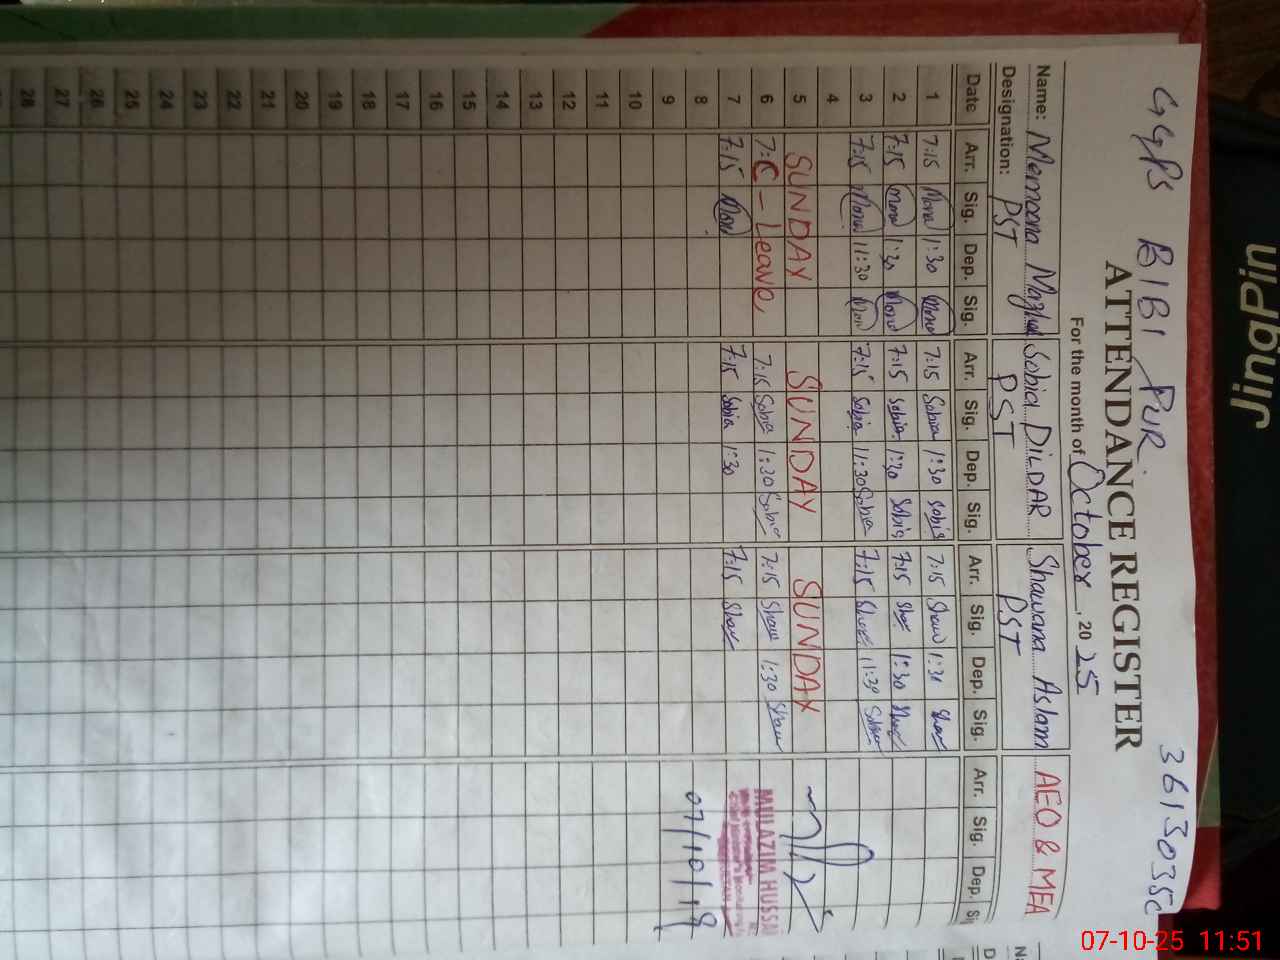 GGPS BIBI PUR 3613035
ATTENDANCE REGISTER
For the month of October, 2025
Name: Memoona Sobia DILDAR Shawana Aslam AEO & MEA
Designation: PST PST PST
Date Arr. Sig. Dep. Sig. Arr. Sig. Dep. Sig. Arr. Sig. Dep. Sig. Arr. Sig. Dep.
1 7:15 Mona 1:30 Mona 7:15 Sobia 1:30 Sobia 7:15 Shaw 1:30 Shaw
2 7:15 Mona 1:30 Mona 7:15 Sobia 1:30 Sobia 7:15 Shaw 1:30 Shaw
3 7:15 Mona 11:30 Mona 7:15 Sobia 11:30 Sobia 7:15 11:30
4
5 SUNDAY SUNDAY SUNDAY
6 C - Leave 7:15 Sobia 1:30 Sobia 7:15 Shaw 1:30 Shaw
7 7:15 Mona 7:15 Sobia 1:30 7:15 Shaw
MULAZIM HUSSAI
8
07/10/19
9
10
11
12
13
14
15
16
17
18
19
20
21
22
23
24
25
26
27
28
Jingpin
07-10-25 11:51